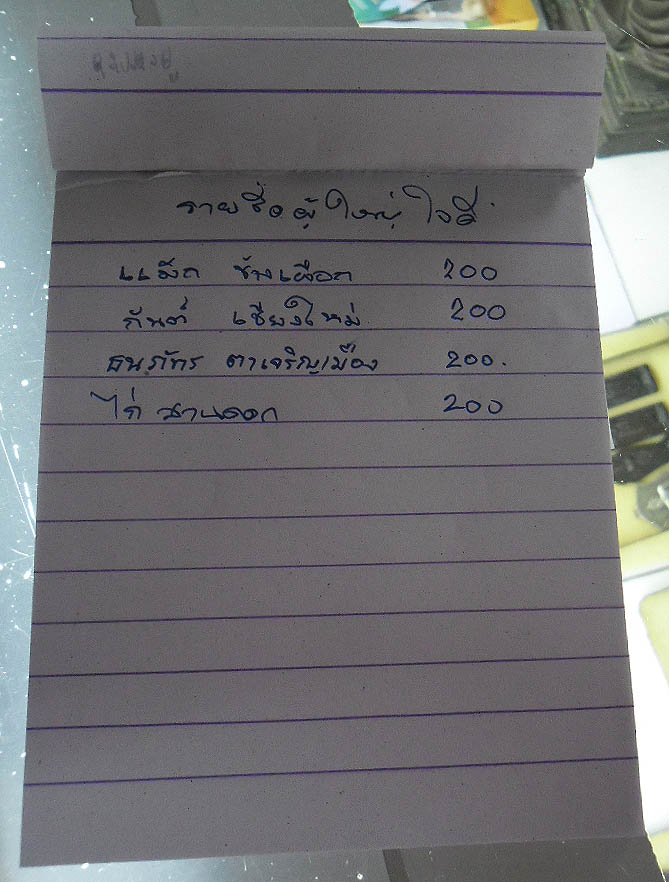 รายชื่อผู้ใหญ่ใจดี
แม็ค ช้างเผือก 200
กันต์ เชียงใหม่ 200
ธนภัทร ตาเจริญเมือง 200.
ไก่ สวนดอก 200